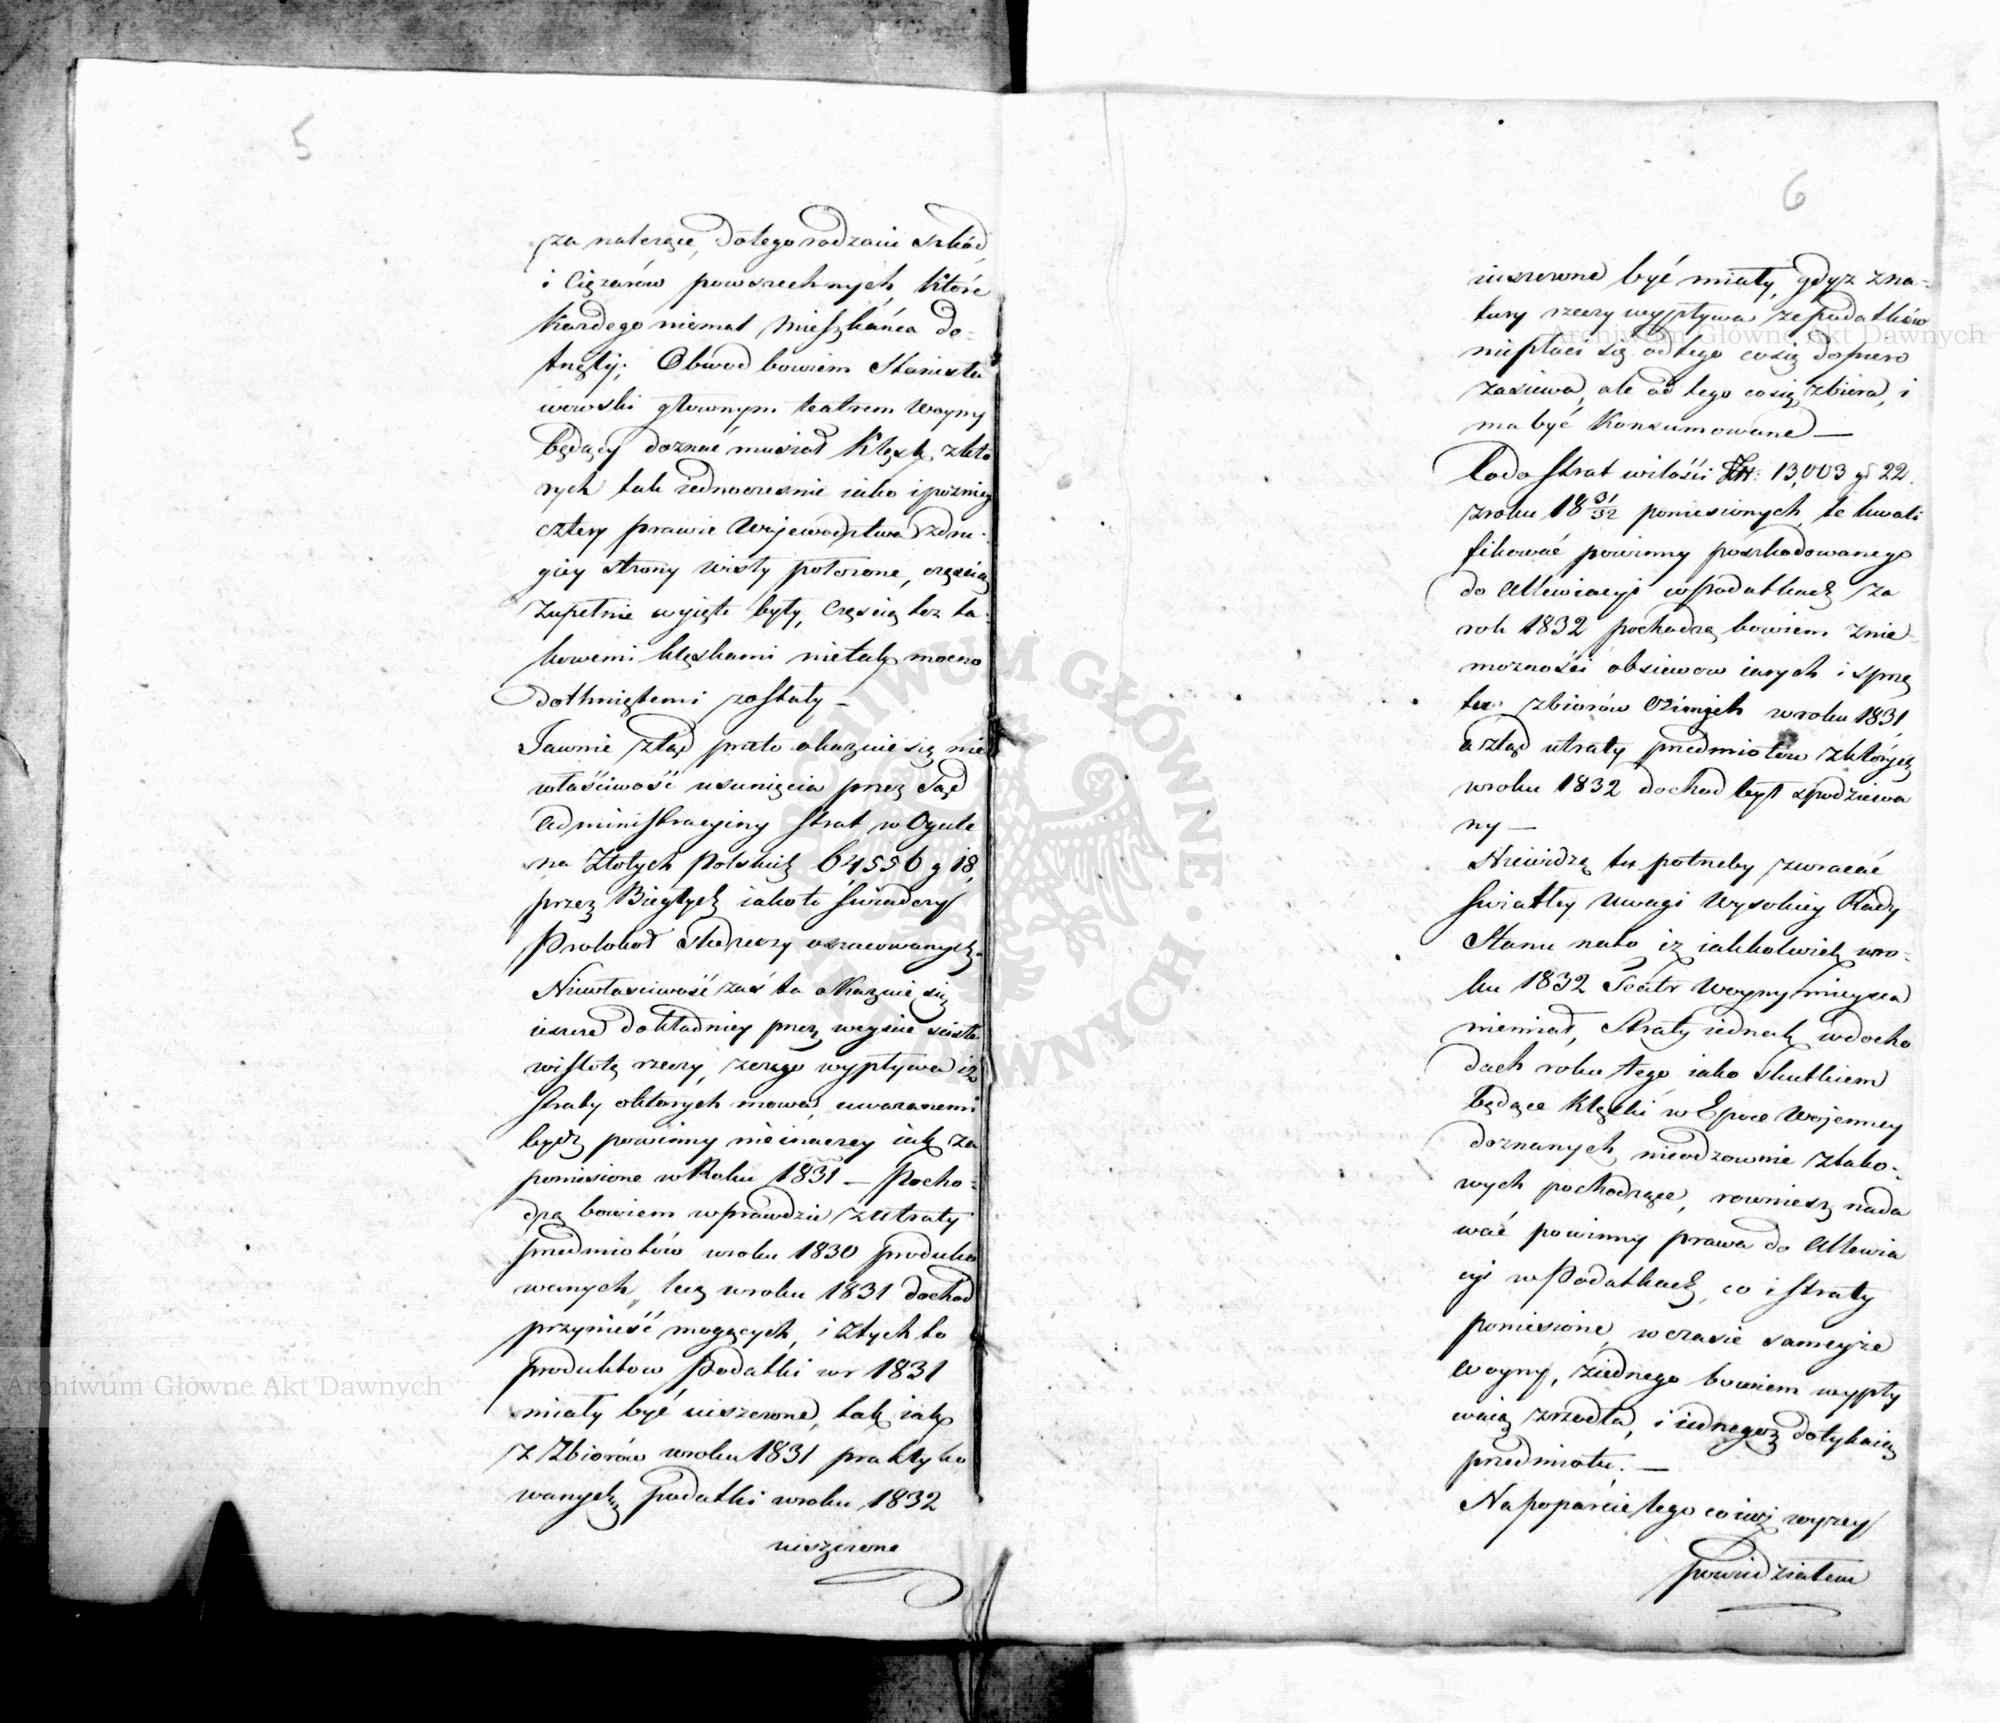 5
za należące, do tego rodzaiu szkód
i ciężarów powszechnych które
każdego niemal mieszkańca do-
tnęły; Obwód bowiem Stanisła
wowski głownym teatrem woyny
będący doznać musiał klęsk, z któ
rych tak iednocześnie iako i pózniey
cztery prawie Województwa z dru-
giey strony Wisły położone, częścią
zupełnie wyjęte były, częścią też ta-
kowemi klęskami nietak mocno
dotkniętemi zostały —
Jawnie ztąd przeto okazuie się nie
właściwość usunięcia przez Sąd
Administracyiny strat w Ogule
na Złotych Polskich 64556 g 18,
przez Biegłych iak to świadczy
Protokoł Śledczy oszacowanych.
Niewłaściwość zaś ta okazuie się
ieszcze dokładniey przez weyście ścisłe
w istotę rzeczy, z czego wypływa iż
straty o których mowa, uważanemi
bydź powinny nieinaczey iak za
poniesione w Roku 1831 — Pocho-
dzą bowiem wprawdzie z utraty
przedmiotów w roku 1830 produko
wanych, lecz w roku 1831 dochod
przynieść mogących, i z tych to
produktow Podatki w r 1831
miały być uiszczone, tak iak
z Zbiorów w roku 1831 praktyko
wanych podatki w roku 1832
uiszczone
6
uiszczone być miały, gdyż z na-
tury rzeczy wypływa że podatków
niepłaci się od tego co się dopiero
zasiewa, ale od tego co się zbiera, i
ma być konsumowane —
Co do strat w ilości Zł: 13,003 g 22.
z roku 18 31/32 poniesionych, te kwali
fikować powinny poszkodowanego
do Allewiacyi w Podatkach za
rok 1832 pochodzą bowiem z nie-
możności obsiewow iarych i sprzę
tu zbiorów ozimych w roku 1831
a ztąd utraty przedmiotów z których
w roku 1832 dochod był spodziewa
ny —
Niewidzę tu potrzeby zwracać
światłey uwagi Wysokiey Rady
Stanu na to, iż iakkolwiek w ro-
ku 1832 Teatr Woyny mieysca
niemiał, Straty iednak w docho
dach roku tego iako skutkiem
będące klęski w Epoce Wojenney
doznanych, nieodzownie z tako-
wych pochodzące, rowniesz nada
wać powinny prawa do Allewia
cyi w Podatkach, co i straty
poniesione, w czasie sameyże
woyny, z iednego bowiem wypły
waią zrzodła, i iednegoż dotykaią
przedmiotu. —
Na poparcie tego co iuż wyżey
powiedziałem
Archiwum Główne Akt Dawnych
Archiwum Główne Akt Dawnych
ARCHIWUM GŁÓWNE • AKT DAWNYCH •